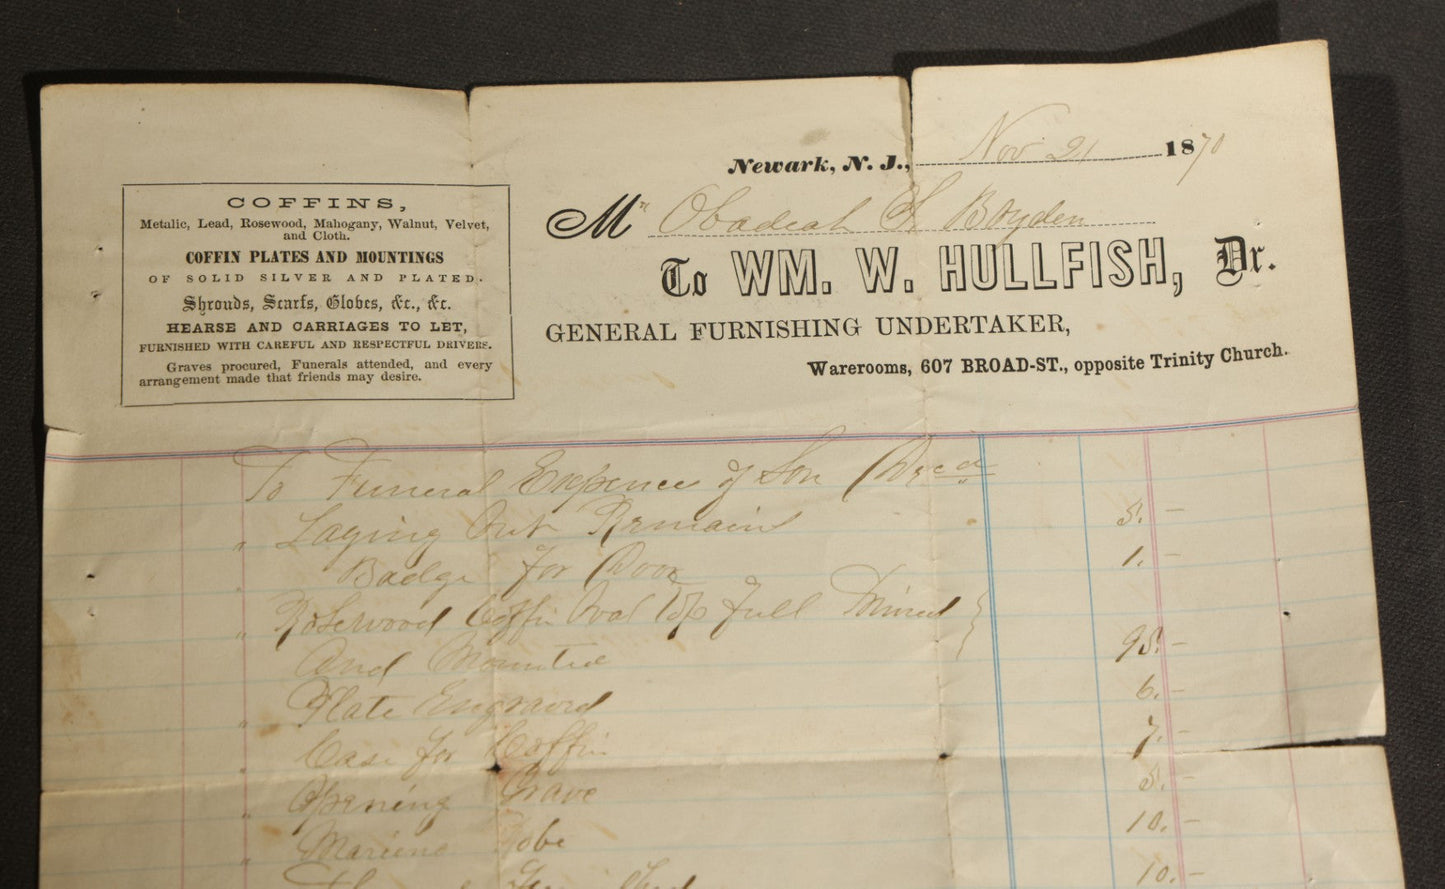 COFFINS,
Metalic, Lead, Rosewood, Mahogany, Walnut, Velvet,
and Cloth.
COFFIN PLATES AND MOUNTINGS
OF SOLID SILVER AND PLATED.
Shrouds, Scarfs, Globes, &c., &c.
HEARSE AND CARRIAGES TO LET,
FURNISHED WITH CAREFUL AND RESPECTFUL DRIVERS.
Graves procured, Funerals attended, and every
arrangement made that friends may desire.
Newark, N. J., Nov 21 1870
Mr Obadiah Boyden
To WM. W. HULLFISH, Dr.
GENERAL FURNISHING UNDERTAKER,
Warerooms, 607 BROAD-ST., opposite Trinity Church.
To Funeral Expences of Son Decd
" Laying Out Remains 5.-
" Badge for Door 1.-
" Rosewood Coffin Oval Top full
And Mounted 95.-
Plate Engraved 6.-
" Case for Coffin 7.-
Opening Grave 5.-
" Robe 10.-
10.-